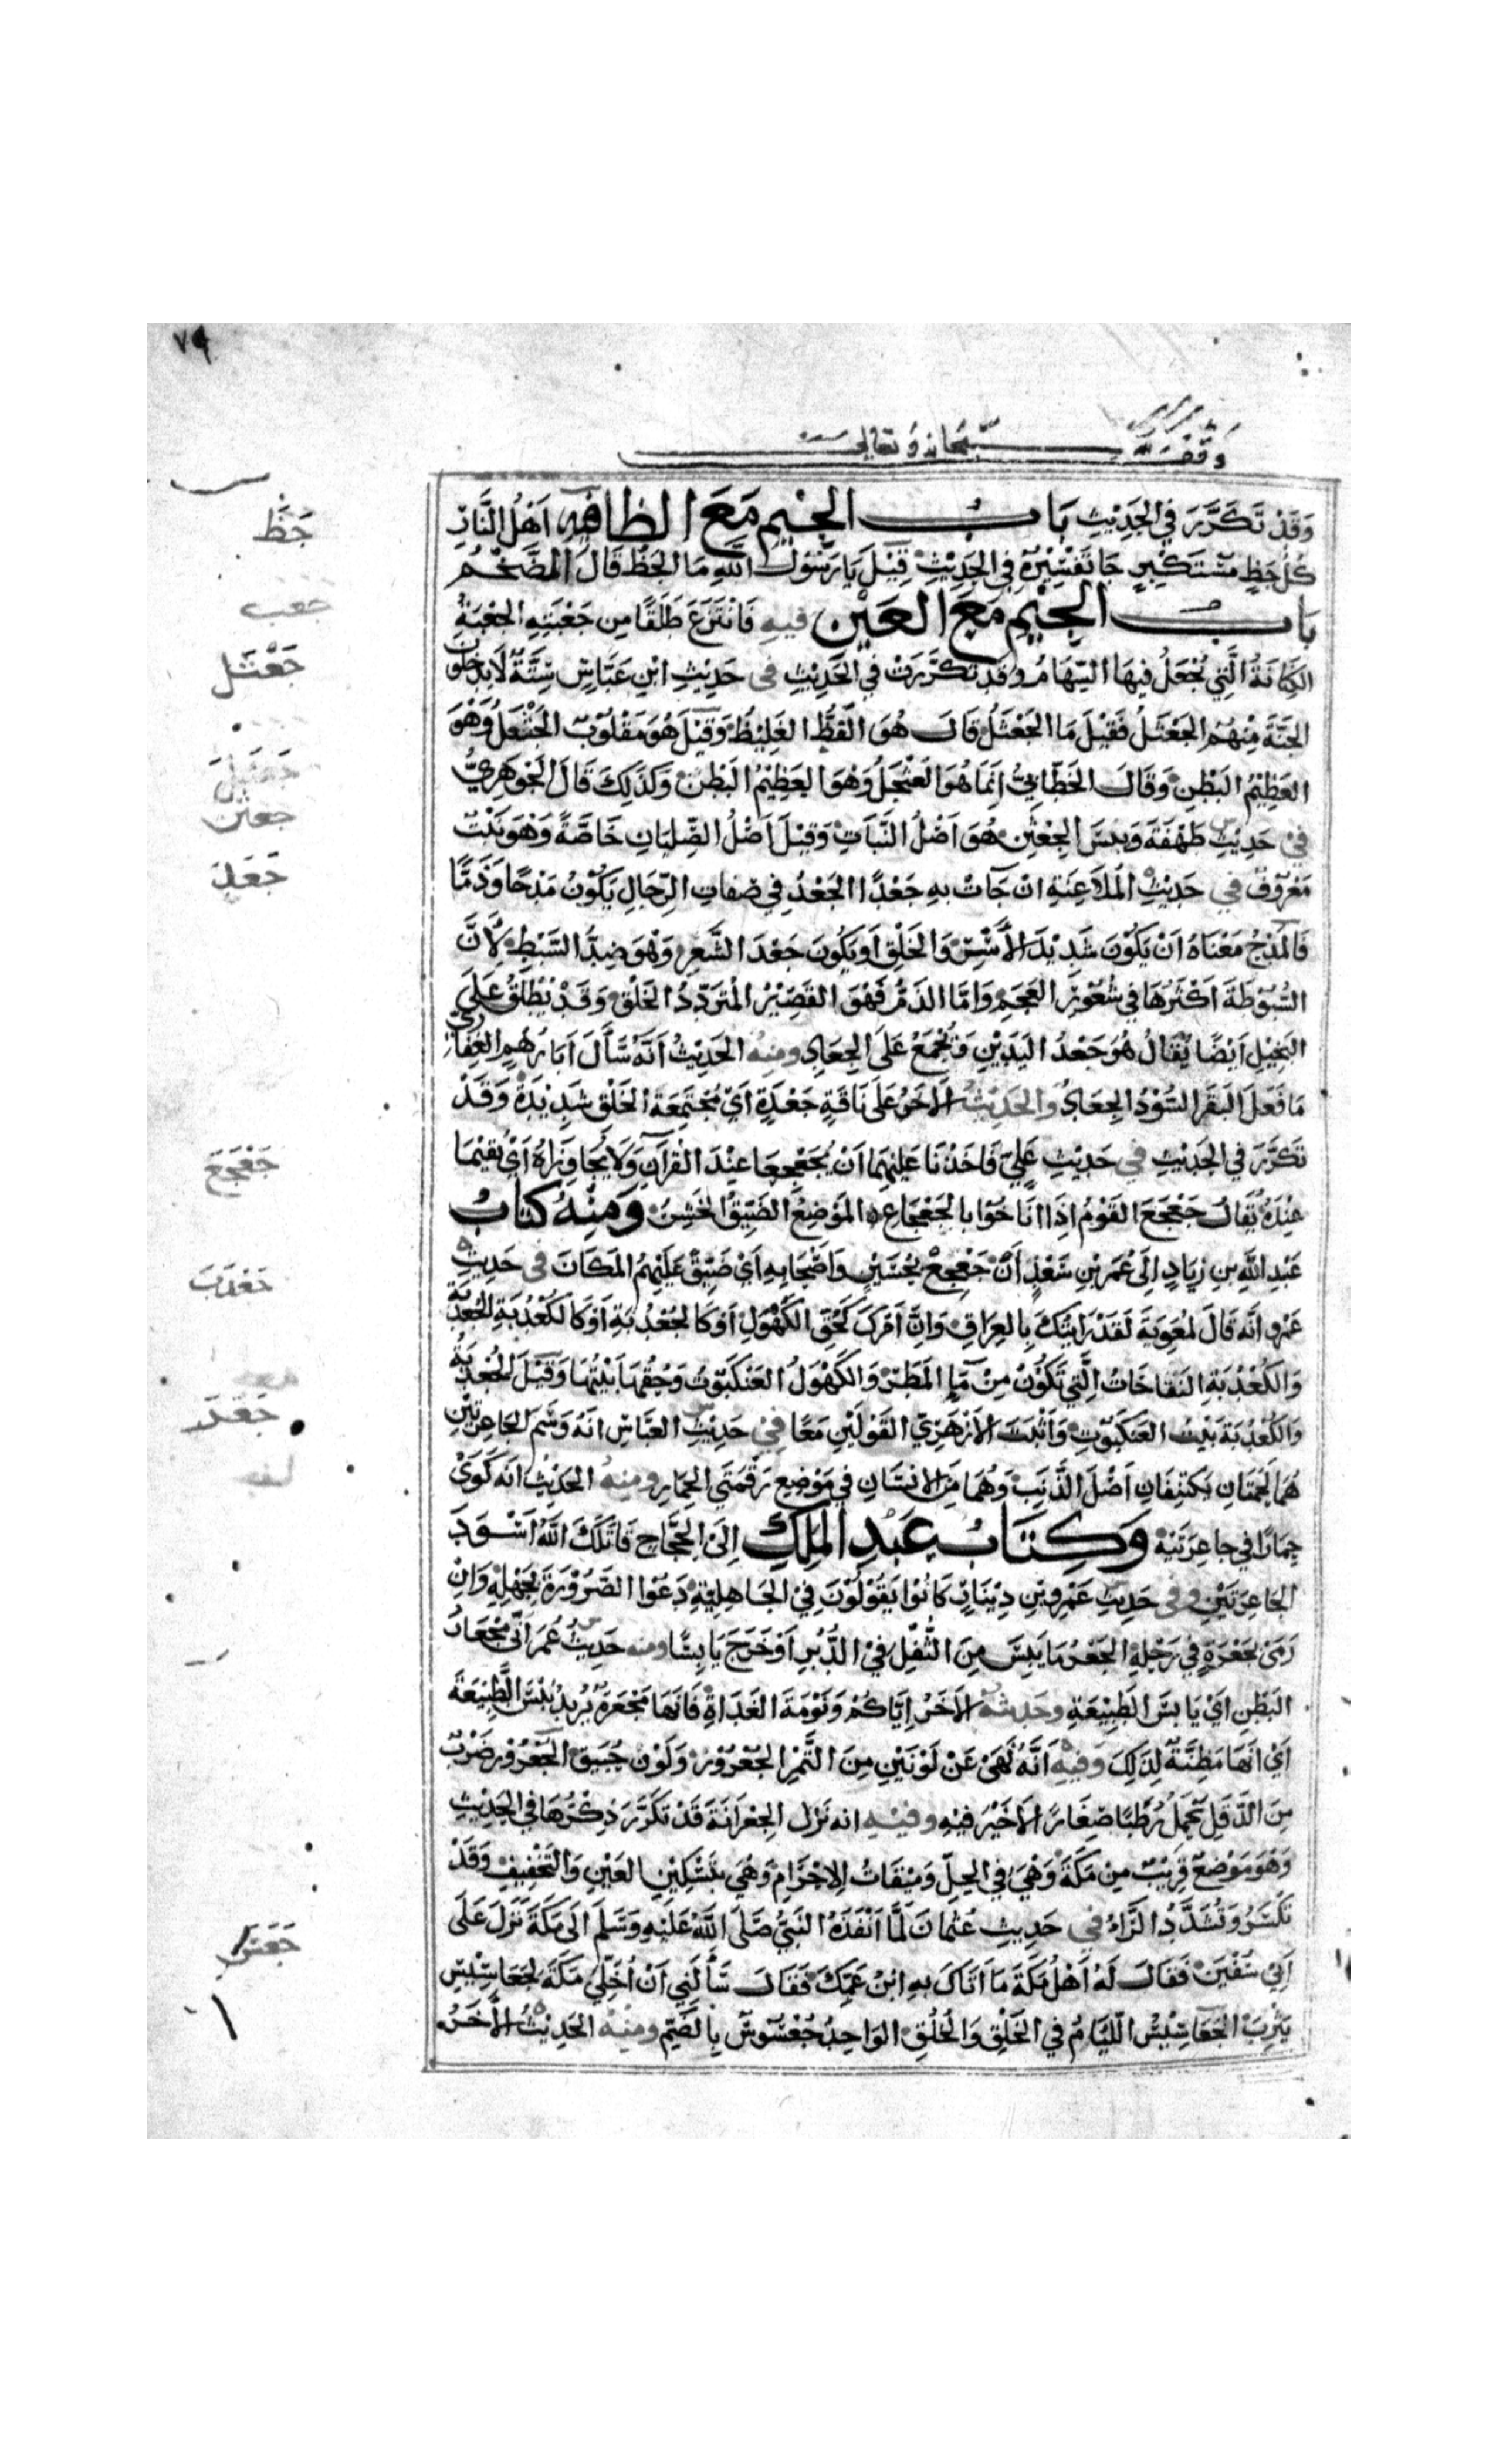 ٧٩
وقف لله سبحانه وتعالى
وَقَدْ تَكَرَّرَ فِي الحَدِيْثِ بَابُ الجِيْمِ مَعَ الظاءِ فيه اَهْلُ النَّارِ
جَظ
كُلُّ جَظٍ مُسْتَكْبِرٍ جَا تَفْسِيْرُهُ فِي الحَدِيْثِ قِيْلَ يَا رَسُوْلَ اللَّهِ مَا الجَظُّ قَالَ الضَّخْمُ
بَابُ الجِيْمِ مَعَ العَيْنِ فيهِ فَانْتَزَعَ طَلَقًا مِن جَعْبَتِهِ الجَعْبَةُ
جعب
الكِنَانَةُ الَّتِي تُجْعَلُ فِيهَا السِّهَامُ وَقَدْ تَكَرَّرَتْ فِي الحَدِيْثِ فى حَدِيْثِ ابْنِ عَبَّاسٍ سِتَّةٌ لَا يَدْخُلُوْنَ
جَعْثَل
الجَنَّةَ مِنْهُمْ الجَعْثَلُ فَقِيْلَ مَا الجَعْثَلُ قَالَ هُوَ الفَظُّ الغَلِيْظُ وَقِيْلَ هُوَ مَقْلُوْبُ الجَثْعَلُ وَهْوَ
العَظِيْمُ البَطْنِ وَقَالَ الخَطَّابِيُّ اِنَّمَا هُوَ العَثْجَلُ وَهْوَ العَظِيْمُ البَطْنِ وَكَذَلِكَ قَالَ الجَوْهَرِيُّ
فِيْ حَدِيْثِ طَهْفَةَ وَيَبِسَ الجِعْثِنُ هُوَ اَصْلُ النَّبَاتِ وَقِيْلَ اَصْلُ الصِّلِيَانِ خَاصَّةً وَهْوَ نَبْتٌ
جعثن
مَعْرُوْفٌ فِي حَدِيْثِ المُلَاعَنَةِ اِنْ جَاتْ بِهِ جَعْدًا الجَعْدُ فِي صِفَاتِ الرِّجَالِ يَكُوْنُ مَدْحًا وَذَمًّا
جَعَدَ
فَالمَدْحُ مَعْنَاهُ اَنْ يَكُوْنَ شَدِيْدَ الأَسْرِ وَالخَلْقِ اَوْ يَكُوْنَ جَعْدَ الشَّعَرِ وَهْوَ ضِدُّ السَّبْطِ لِأَنَّ
السُّبُوْطَةَ اَكْثَرُهَا فِي شُعُوْرِ العَجَمِ وَاَمَّا الذَمُّ فَهْوَ القَصِيْرُ المُتَرَدِّدُ الخَلْقِ وَقَدْ يُطْلَقُ عَلَى
البَخِيْلِ اَيْضًا يُقَالُ هُوَ جَعْدُ اليَدَيْنِ وَتُجْمَعُ عَلَى الجِعَادِ ومنهُ الحَدِيْثُ اَنَّهُ سَأَلَ اَبَا رُهْمٍ الغِفَارِيَّ
مَا فَعَلَ البَقَرُ السُّوْدُ الجِعَادُ والحَدِيْثُ الآخَرُ عَلَى نَاقَةٍ جَعْدَةٍ اَيْ مُجْتَمِعَةِ الخَلْقِ شَدِيْدَةٌ وَقَدْ
تَكَرَّرَ فِي الحَدِيْثِ فِي حَدِيْثِ عَلِيٍّ فَاَخَذْنَا عَلَيْهِمَا اَنْ يُجَعْجِعَا عِنْدَ القُرْآنِ وَلَا يُجَاوِزَاهُ اَيْ يُقِيْمَا
جَعْجَعَ
عِنْدَهُ يُقَالُ جَعْجَعَ القَوْمُ اِذَا انَاخُوْا بِالجَعْجَاعِ المَوْضِعُ الضَّيِّقُ الخَشِنُ وَمِنْهُ كِتَابُ
عَبْدِ اللَّهِ بنِ زِيَادٍ اِلَى عُمَرَ بْنِ سَعْدٍ أَنْ جَعْجِعْ بِحُسَيْنٍ وَاَصْحَابِهِ اَيْ ضَيِّقْ عَلَيْهِمُ المَكَانَ فى حَدِيْثِ
جَعْدَبَ
عَمْرٍو اَنَّه قَالَ لِمُعٰوِيَةَ لَقَدْ رَاَيْتُكَ بِالعِرَاقِ وَاِنَّ اَمْرَكَ كَحُقِّ الكَهُوْلِ اَوْ كَالجُعْدُبَةِ اَوْ كَالكُعْدُبَةِ الجُعْدُبَةِ
وَالكُعْدُبَةِ النُفَّاخَاتُ الَّتِي تَكُوْنُ مِنْ مَاءِ المَطَرِ وَالكَهُوْلُ العَنْكَبُوْتُ وَحُقُّهَا بَيْتُهَا وَقِيْلَ الجُعْدُبَةُ
وَالكُعْدُبَةُ بَيْتُ العَنْكَبُوْتِ وَاَثْبَتَ الاَزْهَرِيُّ القَوْلَيْنِ مَعًا فِيْ حَدِيْثِ العَبَّاسِ اَنَّهُ وَسَمَ الجَاعِرَتَيْنِ
هُمَا لَحْمَتَانِ يَكْتَنِفَانِ اَصْلَ الذَّنَبِ وَهُمَا مِنَ الاِنْسَانِ فِي مَوْضِعِ رَقْمَتَيِ الحِمَارِ ومِنهُ الحَدِيْثُ اَنَّه كَوَىْ
حِمَارًا فِي جَاعِرَتَيْهِ وَكِتَابُ عَبْدِ المَلِكِ اِلَى الحَجَّاجِ قَاتَلَكَ اللَّهُ اَسْوَدَ
الجَاعِرَتَيْنِ وفى حَدِيْثِ عَمْرِو بْنِ دِيْنَارٍ كَانُوْا يَقُوْلُوْنَ فِيْ الجَاهِلِيَّةِ دَعُوْا الصَّرُوْرَةَ بِجَهْلِهِ وَاِنْ
رَمَى بِجَعْرِهِ فِي رَحْلِهِ الجَعْرُ مَا يَبِسَ مِنَ الثُّفْلِ فِيْ الدُّبُرِ اَوْ خَرَجَ يَابِسًا ومنه حَدِيْثُ عُمَرَ اِنِّي مِجْعَارُ
البَطْنِ اَيْ يَابِسُ الطَّبِيْعَةِ وحَدِيْثُهُ الآخَرُ اِيَّاكُمْ وَنَوْمَةَ الغَدَاةِ فَاِنَّهَا مَجْعَرَةٌ يُرِيْدُ يُبْسَ الطَّبِيْعَةِ
اَيْ اَنَّهَا مَظِنَّةٌ لِذَلِكَ وَفِيْهِ اَنَّهُ نَهَى عَنْ لَوْنَيْنِ مِنَ التَّمْرِ الجُعْرُوْرِ وَلَوْنِ حُبَيْقٍ الجُعْرُوْرُ ضَرْبٌ
مِنَ الدَّقَلِ يَحْمِلُ رُطَبًا صِغَارًا لَا خَيْرَ فِيْهِ وفِيْهِ انه نَزَلَ الجِعْرَانَةَ قَدْ تَكَرَّرَ ذِكْرُهَا فِي الحَدِيْثِ
وَهْوَ مَوْضِعٌ قَرِيْبٌ مِنْ مَكَّةَ وَهْيَ فِي الحِلِّ وَمِيْقَاتُ الاِحْرَامِ وَهْيَ بِتَسْكِيْنِ العَيْنِ وَالتَّخْفِيْفِ وَقَدْ
تُكْسَرُ وَتُشَدَّدُ الرَّاءُ فِي حَدِيثِ عُثْمَانَ لَمَّا اَنْفَذَهُ النَّبِيُّ صَلَّى اللَّهُ عَلَيْهِ وَسَلَّمَ اِلَى مَكَّةَ نَزَلَ عَلَى
اَبِيْ سُفْيٰنَ فَقَالَ لَهُ اَهْلُ مَكَّةَ مَا اَتَاكَ بِهِ ابْنُ عَمِّكَ فَقَالَ سَأَلَنِي اَنْ اُخَلِّيَ مَكَّةَ لِجَعَاسِيْسِ
يَثْرِبَ الجَعَاسِيْسُ اللِّيَامُ فِي الخَلْقِ وَالخُلُقِ الوَاحِدُ جُعْسُوْسٌ بِالضَّمِّ ومِنْهُ الحَدِيْثُ الآخَرُ